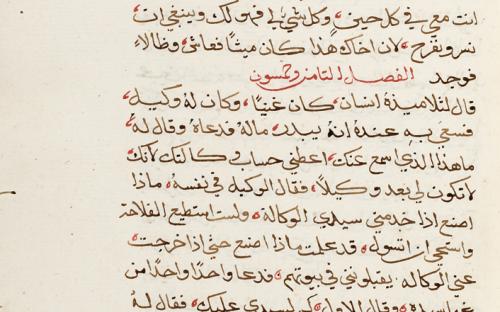 انت معي في كل حين، وكل شي لي فهو لك وينبغي ان
نسر ونفرح، لان اخاك هذا كان ميتًا فعاش، وضالًا
فوجد الفصل الثامن وخمسون
قال لتلاميذه انسان، كان غنيًا، وكان له وكيل،
فسعي به عنده انه يبدر، ماله فدعاه وقال له،
ما هذا الذي اسمع عنك، اعطني حساب وكالتك لانك
لا تكون لي بعد وكيلًا، فقال الوكيل في نفسه، ماذا
اصنع اذا خدمني سيدي الوكاله، ولست استطيع الفلاحة
واستحي ان اتسول، قد علمت ماذا اصنع حتي اذا خرجت
عني الوكاله، يقبلونني في بيوتهم، فدعا واحدًا واحدًا من
وقال الاول، كم لسيدي عليك، فقال له